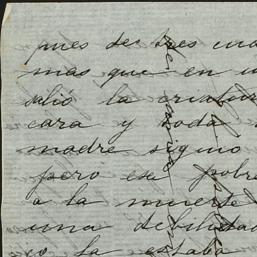 pues de tres cua
mas que en u
salió la criatur
cara y toda
madre siguió
pero ese pobre
a la muerte
una debilidad
la estaba